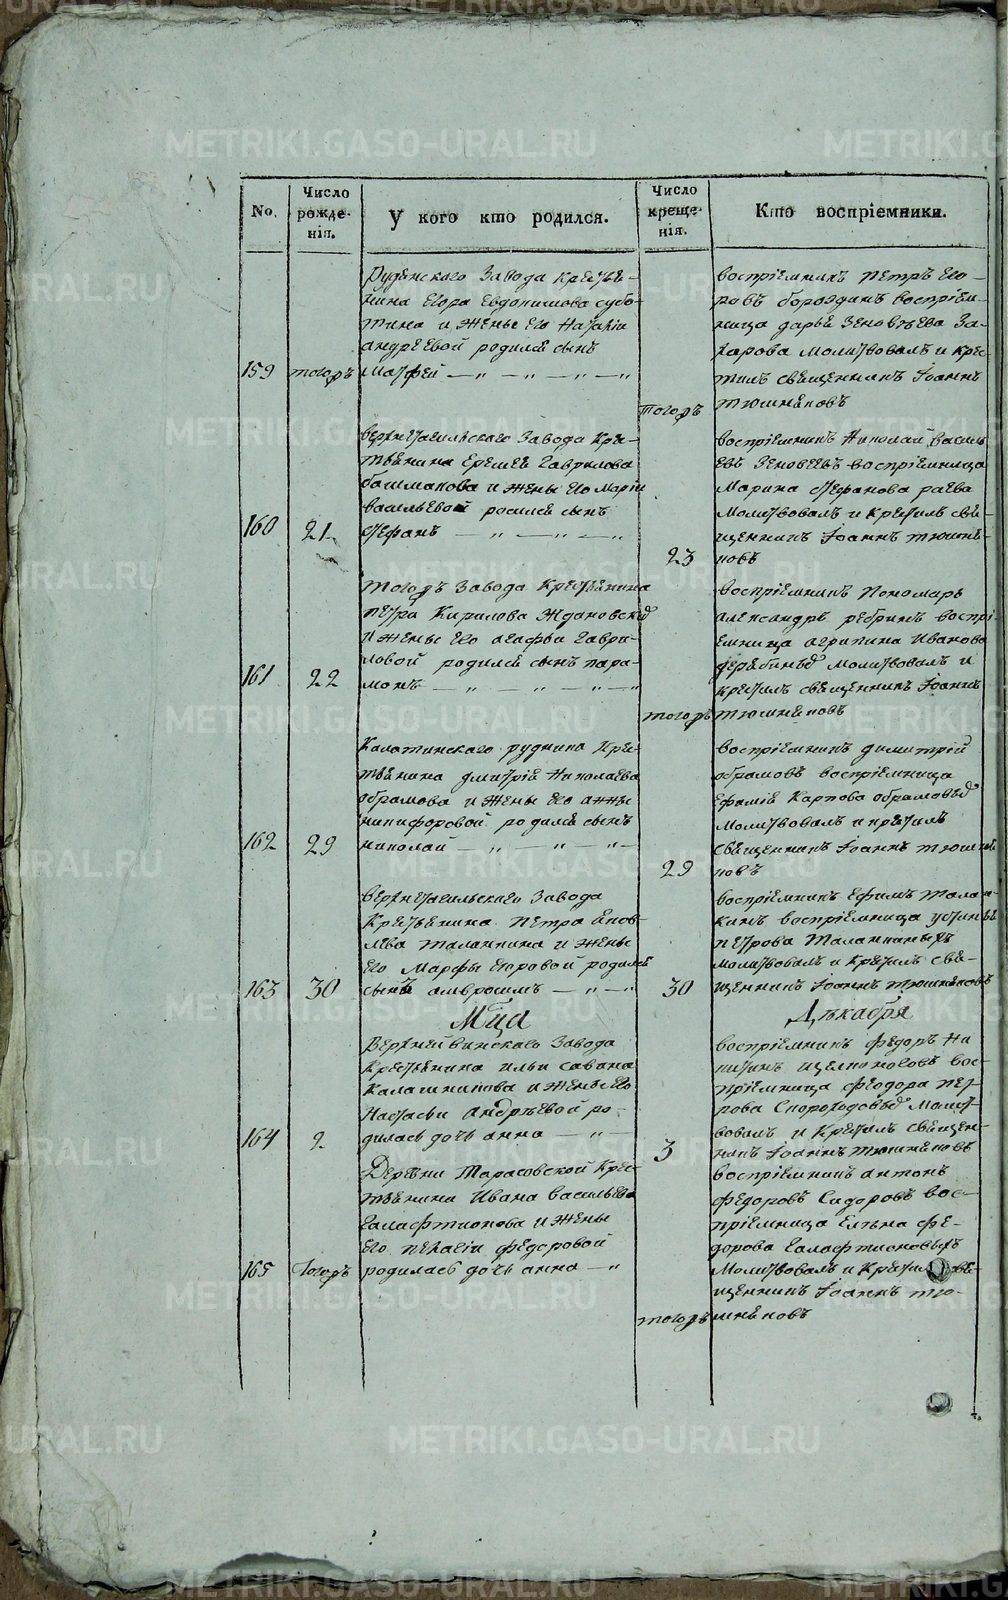 No.
Число рожде-нія.
У кого кто родился.
Число креще-нія.
Кто воспріемники.
Руденскаго Завода Крестья-
нина Егора Евдокимова субо-
тина и жены его Наталіи
андреевой родился сынъ
159 тогожъ матфей
тогожъ
воспріемникъ петръ его-
ровъ бороздинъ воспріем-
ница дарья Зеновьева За-
харова молитвовалъ и крес-
тилъ священникъ Іоаннъ
тюшняковъ
верхнетагильскаго Завода Крес-
тьянина Еремея Гаврилова
башмакова и жены его Марьи
васильевой родился сынъ
160 21 стефанъ
23
воспріемникъ Николай василь
евъ Зеновеевъ воспріемница
Марина стефанова раева
молитвовалъ и крестилъ свя-
щенникъ Іоаннъ тюшня-
ковъ
тогожъ Завода Крестьянина
петра Кирилова Ждановской
и жены его агафьи Гаври-
ловой родился сынъ пара-
161 22 монъ
тогожъ
воспріемникъ Пономарь
александръ ребринъ воспрі-
емница агрипина Иванова
молитвовалъ и
крестилъ священникъ Іоаннъ
тюшняковъ
Калатинскаго рудника Крес-
тьянина дмитрія Николаева
обрамова и жены его анны
никифоровой родился сынъ
162 29 николай
29
воспріемникъ димитрій
обрамовъ воспріемница
Ефимія Карпова обрамовыд
молитвовалъ и крестилъ
священникъ Іоаннъ тюшня
ковъ
верхнетагильскаго Завода
Крестьянина петра яков-
лева таланкина и жены
его Марфы егоровой родился
163 30 сынъ амвросимъ
30
воспріемникъ ефимъ талан-
кинъ воспріемница устинья
петрова таланкиныхъ
молитвовалъ и крестилъ свя-
щенникъ Іоаннъ тюшняковъ
Мца Декабря
Верхнейвинскаго Завода
Крестьянина ильи савина
Калашникова и жены его
Настасьи андреевой ро-
164 2 дилась дочь анна
3
воспріемникъ федоръ Ни
китинъ щелконоговъ вос-
пріемница феодора пет-
рова Скороходовыд молит-
вовалъ и крестилъ священ-
никъ Іоаннъ тюшняковъ
Деревни Тарасовской Крес-
тьянина Ивана васильева
Галафтионова и жены
его пелагіи федоровой
165 Тогожъ родилась дочь анна
тогожъ
воспріемникъ антонъ
федоровъ Сидоровъ вос-
пріемница Елена фе-
дорова Галафтионовыхъ
молитвовалъ и крестилъ свя-
щенникъ Іоаннъ тю-
шняковъ
METRIKI.GASO-URAL.RU